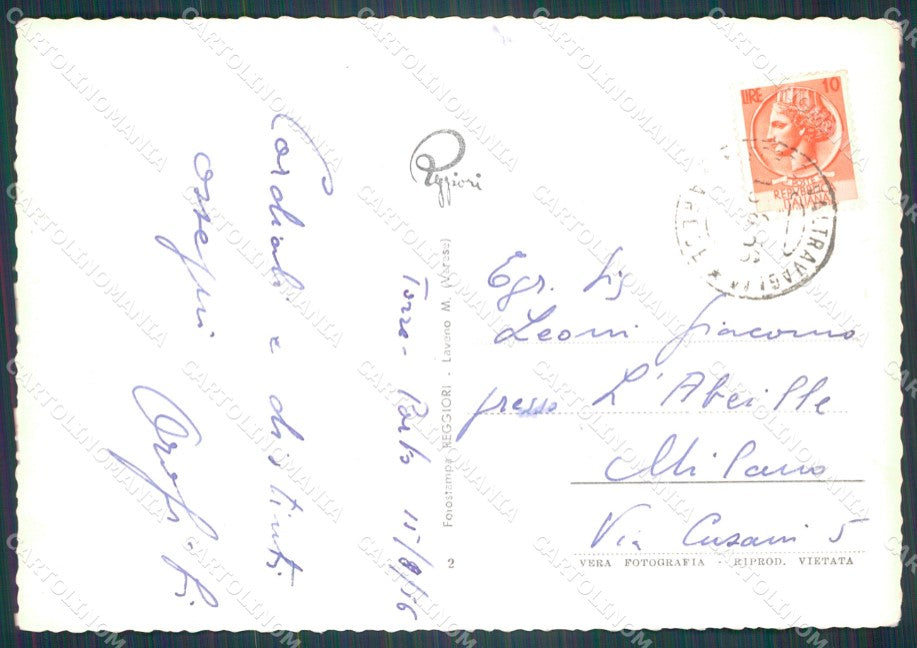 Cordiali e distinti
ossequi
Reggiori
Torre - Porto 15/8/56
Fotostampa REGGIORI - Laveno M. (Varese)
2
LIRE 10
POSTE
REPUBBLICA
ITALIANA
Egr. Sig
Leoni Giacomo
presso L'Abeille
Milano
Via Cusani 5
VERA FOTOGRAFIA - RIPROD. VIETATA
CARTOLINOMANIA